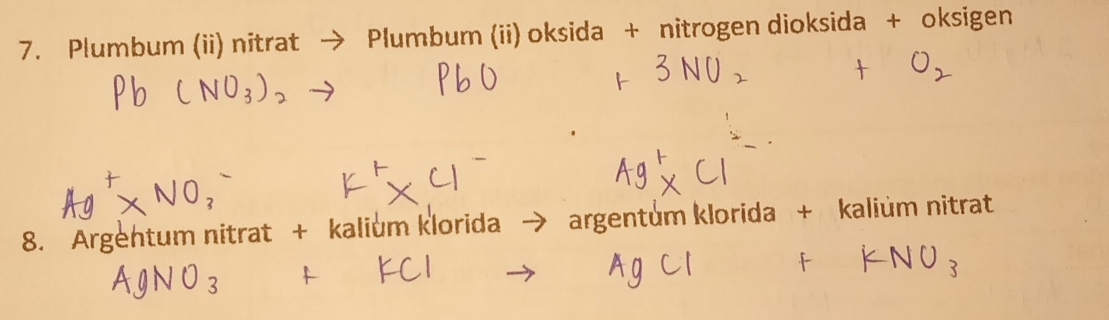 7. Plumbum (ii) nitrat → Plumbum (ii) oksida + nitrogen dioksida + oksigen
Pb (NO₃)₂ → PbO + 3NO₂ + O₂
Ag⁺ × NO₃⁻ K⁺ × Cl⁻ Ag⁺ × Cl⁻
8. Argentum nitrat + kalium klorida → argentum klorida + kalium nitrat
AgNO₃ + KCl → AgCl + KNO₃